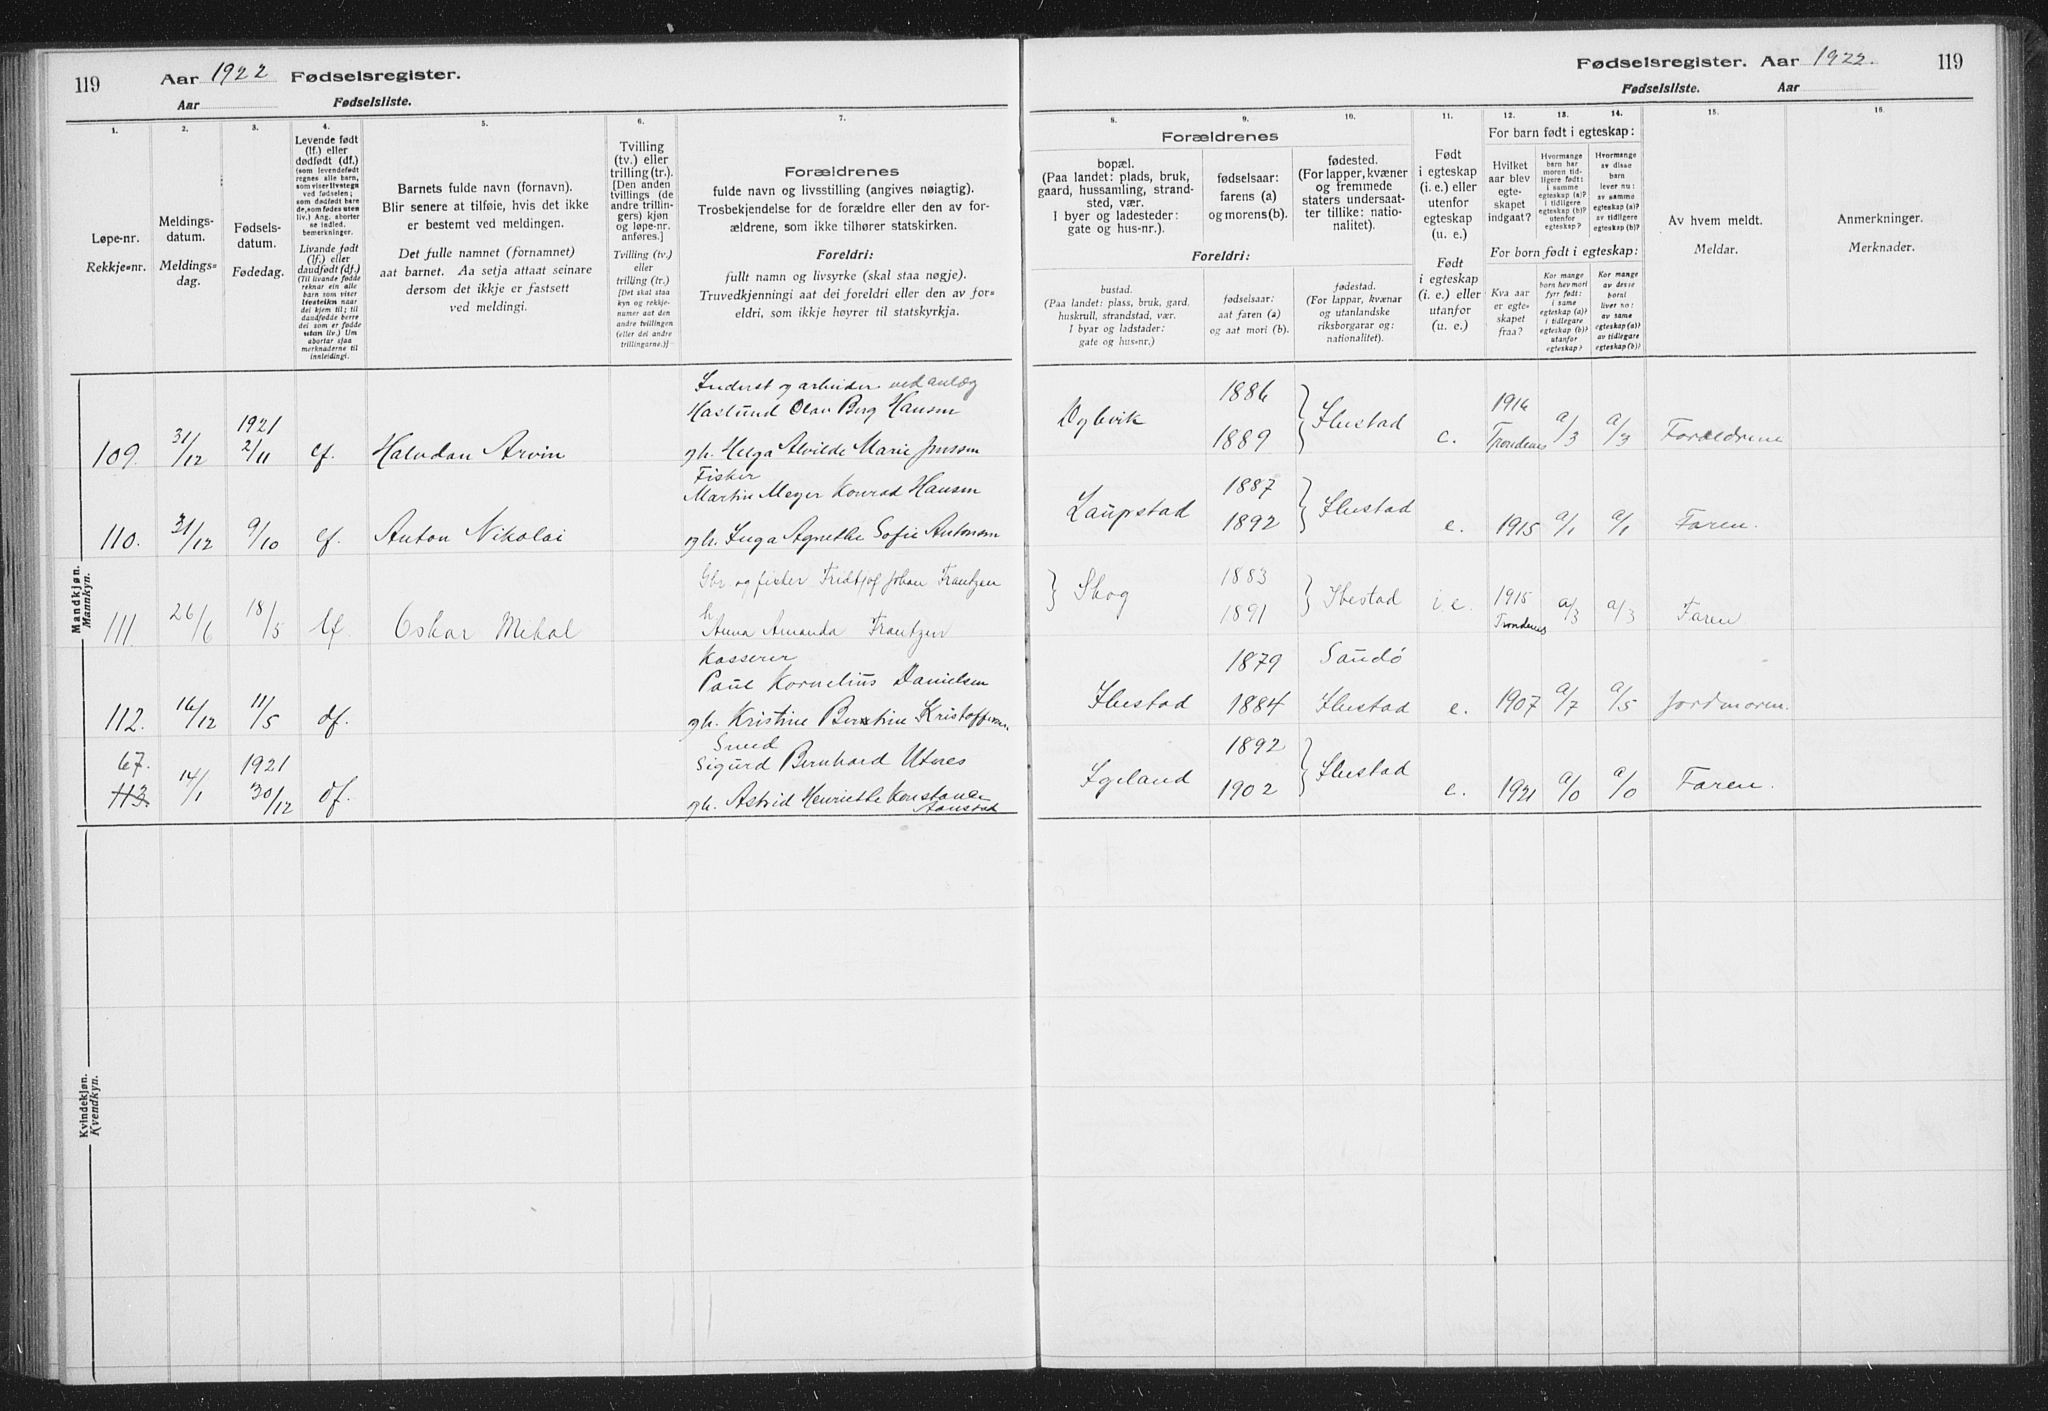 119 Aar 1922 Fødselsregister.
Aar Fødselsliste.
Fødselsregister. Aar 1922. 119
Fødselsliste. Aar
1. 2. 3. 4. 5. 6. 7.
Løpe-nr.
Rekkje-nr.
Meldings-
datum.
Meldings-
dag.
Fødsels-
datum.
Fødedag.
Levende født
(lf.) eller
dødfødt (df.)
(som levendefødt
regnes alle barn,
som viser livstegn
ved fødselen;
som dødfødt bare
de, som fødes uten
liv.) Ang. aborter
se indled.
bemerkninger.
Livande født
(lf.) eller
daudfødt (df.)
(Til livande fødde
reknar ein alle
born som viser
livsteikn naar
dei kjem til; til
daudfødde berre
dei som er fødde
utan liv.) Um
abortar sjaa
merknaderne til
innleidingi.
Barnets fulde navn (fornavn).
Blir senere at tilføie, hvis det ikke
er bestemt ved meldingen.
Det fulle namnet (fornamnet)
aat barnet. Aa setja attaat seinare
dersom det ikkje er fastsett
ved meldingi.
Tvilling
(tv.) eller
trilling (tr.).
[Den anden
tvillings (de
andre trillin-
gers) kjøn
og løpe-nr.
anføres.]
Tvilling (tv.)
eller
trilling (tr.)
[Det skal staa
kyn og rekkje-
numer aat den
andre tvillingen
(eller dei andre
trillingarne.)]
Forældrenes
fulde navn og livsstilling (angives nøiagtig).
Trosbekjendelse for de forældre eller den av for-
ældrene, som ikke tilhører statskirken.
Foreldri:
fullt namn og livsyrke (skal staa nøgje).
Truvedkjenningi aat dei foreldri eller den av for-
eldri, som ikkje høyrer til statskyrkja.
8. 9. 10. 11. 12. 13. 14. 15. 16.
Forældrenes
bopæl.
(Paa landet: plads, bruk,
gaard, hussamling, strand-
sted, vær.
I byer og ladesteder:
gate og hus-nr.).
fødselsaar:
farens (a)
og morens (b).
fødested.
(For lapper, kvæner
og fremmede
staters undersaat-
ter tillike: natio-
nalitet).
Foreldri:
bustad.
(Paa landet: plass, bruk, gard,
huskrull, strandstad, vær.
I byar og ladstader:
gate og hus-nr.)
fødselsaar:
aat faren (a)
og aat mori (b).
fødestad.
(For lappar, kvænar
og utanlandske
riksborgarar og:
nationalitet).
Født
i egteskap
(i. e.) eller
utenfor
egteskap
(u. e.)
Født
i egteskap
(i. e.) eller
utanfor
(u. e.)
For barn født i egteskap:
Hvilket
aar blev
egte-
skapet
indgaat?
Hvormange
barn har
moren tid-
ligere født:
i samme
egteskap (a)?
i tidligere
egteskap (b)?
utenfor
egteskap?
Hvormange
av disse
barn
lever nu:
av samme
egteskap (a)?
av tidligere
egteskap (b)?
For born født i egteskap:
Kva aar
er egte-
skapet
fraa?
Kor mange
born hev mori
fyrr født:
i same
egteskap (a)?
i tidlegare
egteskap (b)?
utanfor
egteskap?
Kor mange
av desse
born
liver no:
av same
egteskap (a)?
av tidlegare
egteskap (b)?
Av hvem meldt.
Meldar.
Anmerkninger.
Merknader.
Mandkjøn.
Mannkyn.
Inderst og arbeider ved anlæg
Haslund Olav Berg Hansen 1886
109. 31/12 1921 2/11 lf. Halvdan Arvin gh. Helga Alvilde Marie Jenssen Dybvik 1889 } Ibestad e. 1916 Trondenes a/3 a/3 Forældrene
Fisker
Martin Meyer Konrad Hansen 1887
110. 31/12 9/10 lf. Anton Nikolai gh. Inga Agnethe Sofie Antonsen Laupstad 1892 } Ibestad e. 1915 a/1 a/1 Faren.
Gbr og fisker Fridtjof Johan Frantzen 1883
111. 26/6 18/5 lf. Oskar Mikal h Anna Amanda Frantzen } Skog 1891 } Ibestad i.e. 1915 Trondenes a/3 a/3 Faren
Kasserer
Paul Kornelius Danielsen 1879 Sandø
112. 16/12 11/5 df. gh. Kristine Berntine Kristoffersen Ibestad 1884 Ibestad e. 1907 a/7 a/5 Jordmoren.
Smed
67. Sigurd Bernhard Utnes 1892
113. 14/1 1921 30/12 df. gh. Astrid Henriette Konstanse Aanstad Igeland 1902 } Ibestad e. 1921 a/0 a/0 Faren.
Kvindekjøn.
Kvendkyn.